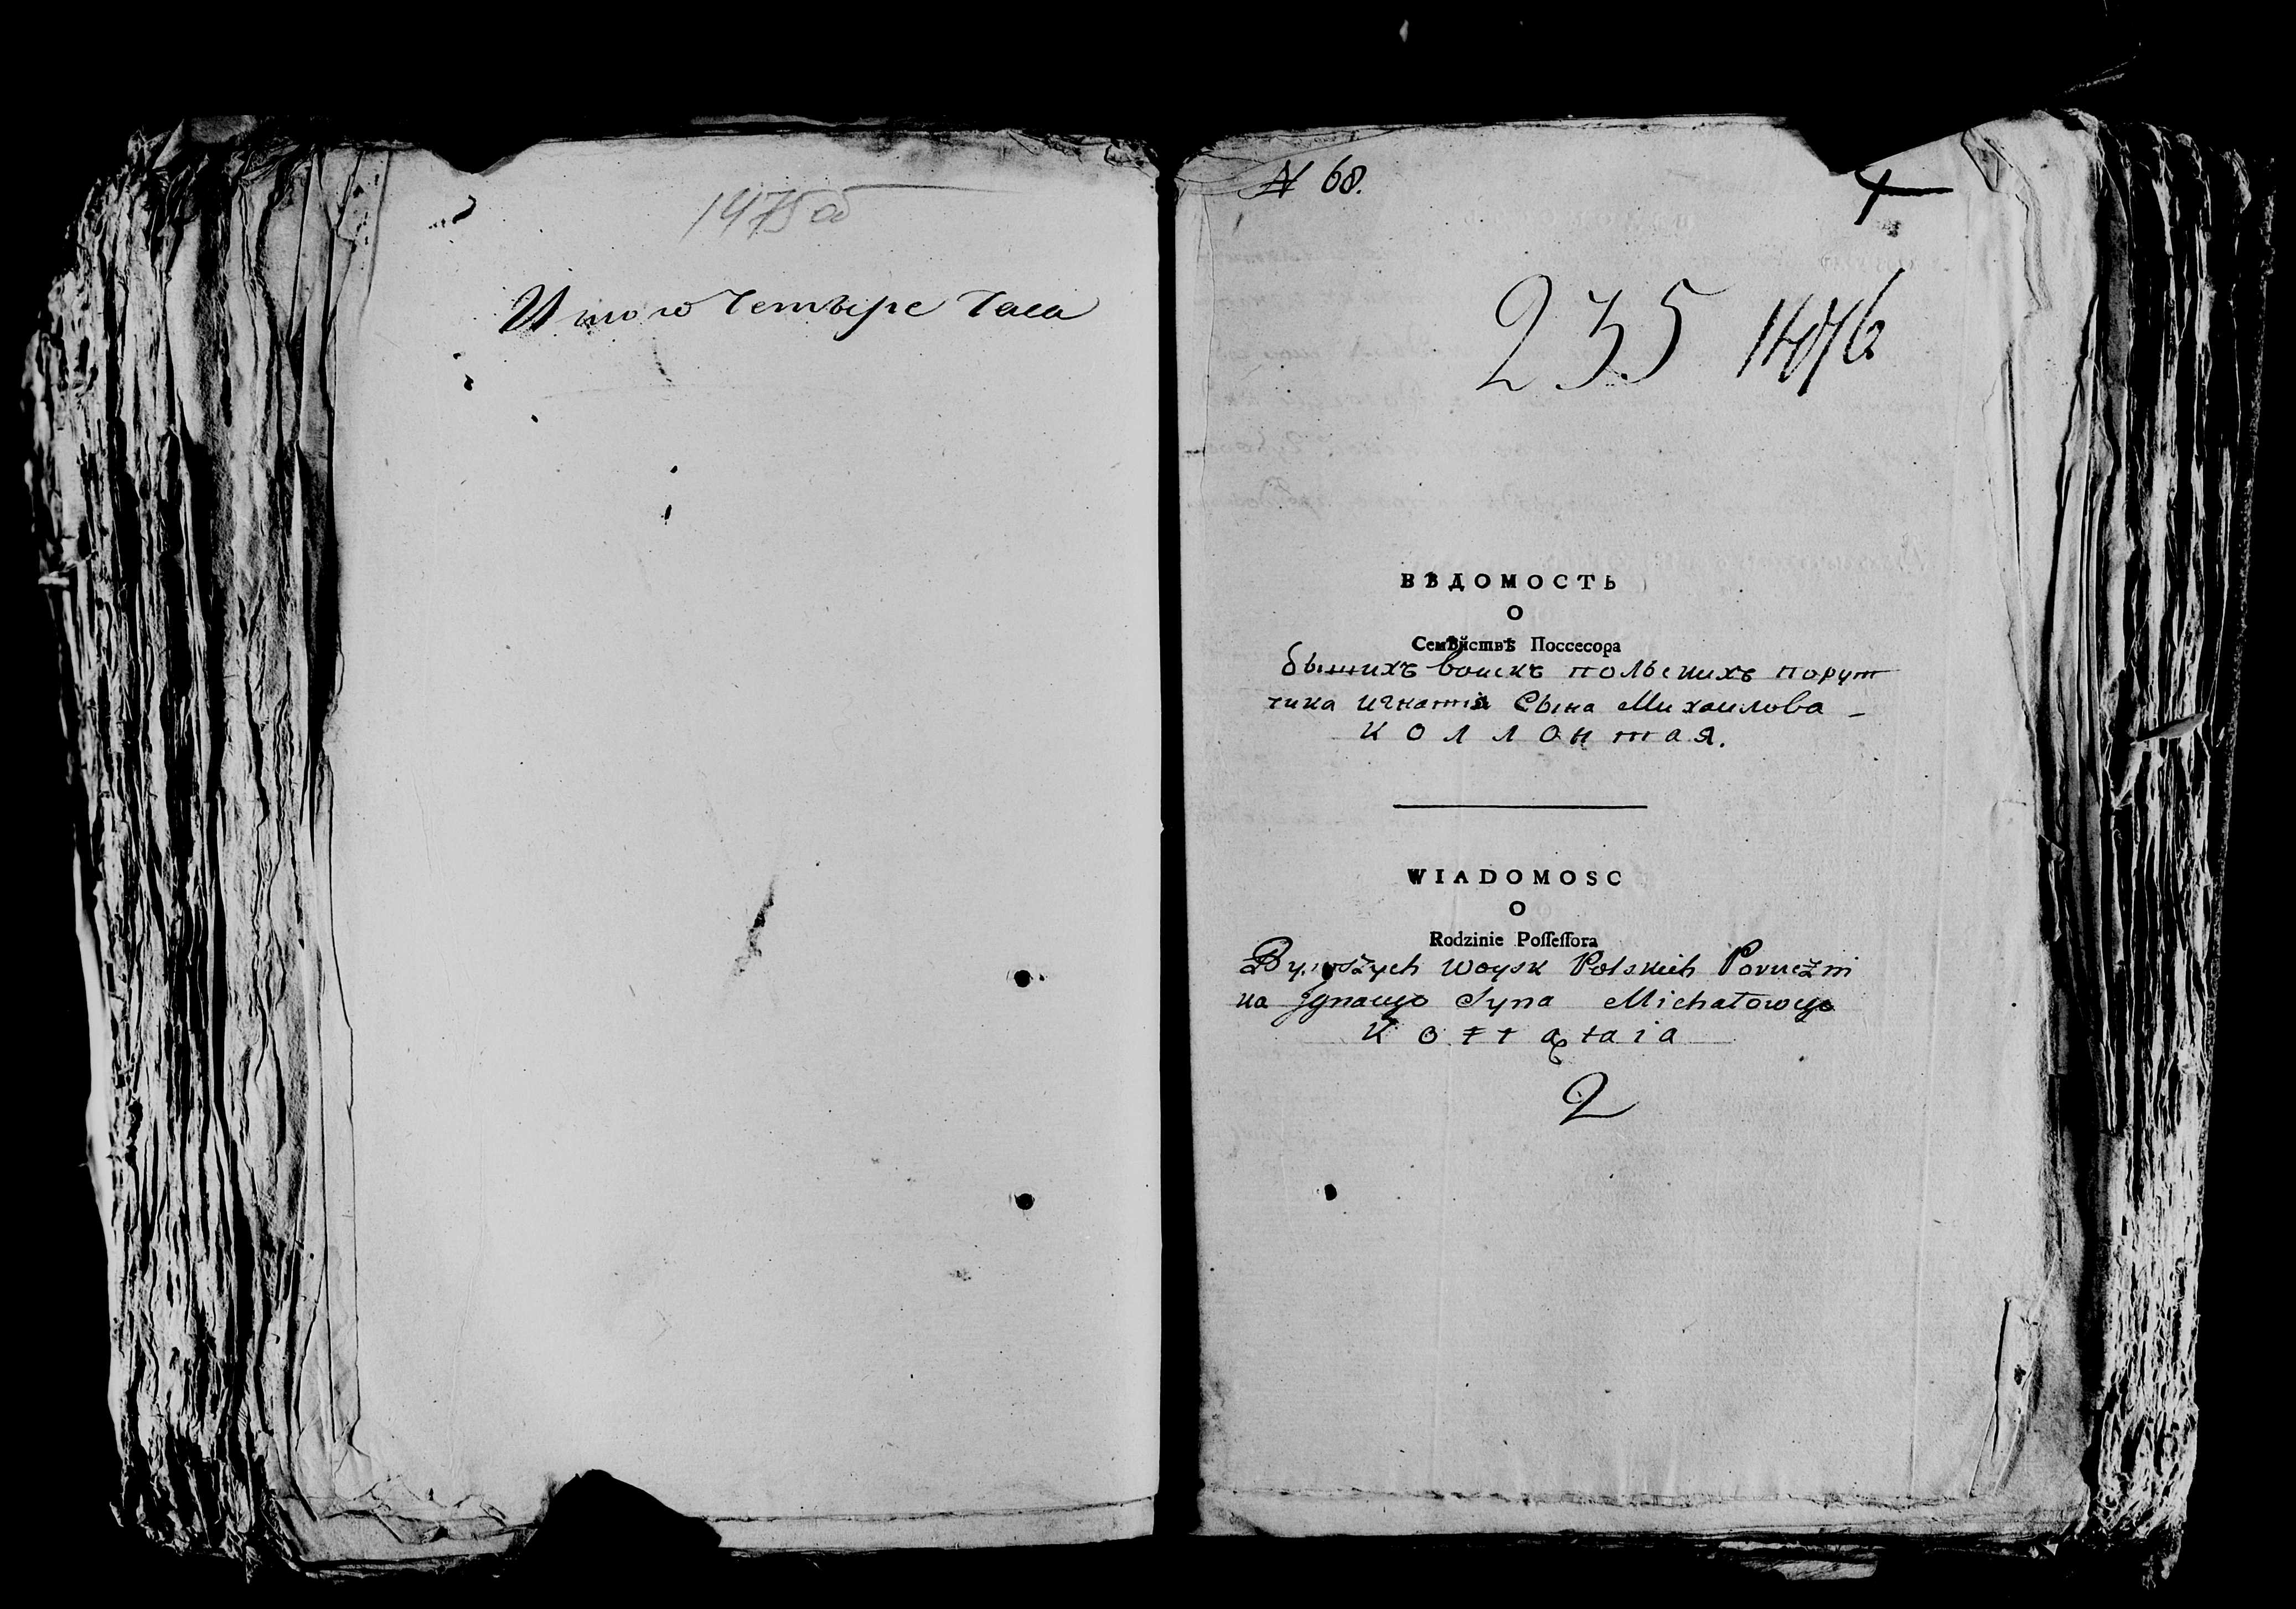 1475об
Итого четыре часа
№ 68.
235 1476
ВѢДОМОСТЬ
О
Семѣйствѣ Поссесора
бышихъ воискъ польскихъ порут
чика игнатія Сына Михаилова
Коллонтая.
WIADOMOSC
O
Rodzinie Poſſeſſora
Bywszych Woysk Polskich Poruczni
ka Jgnacego Syna Michałowego
Kołłątaia
2